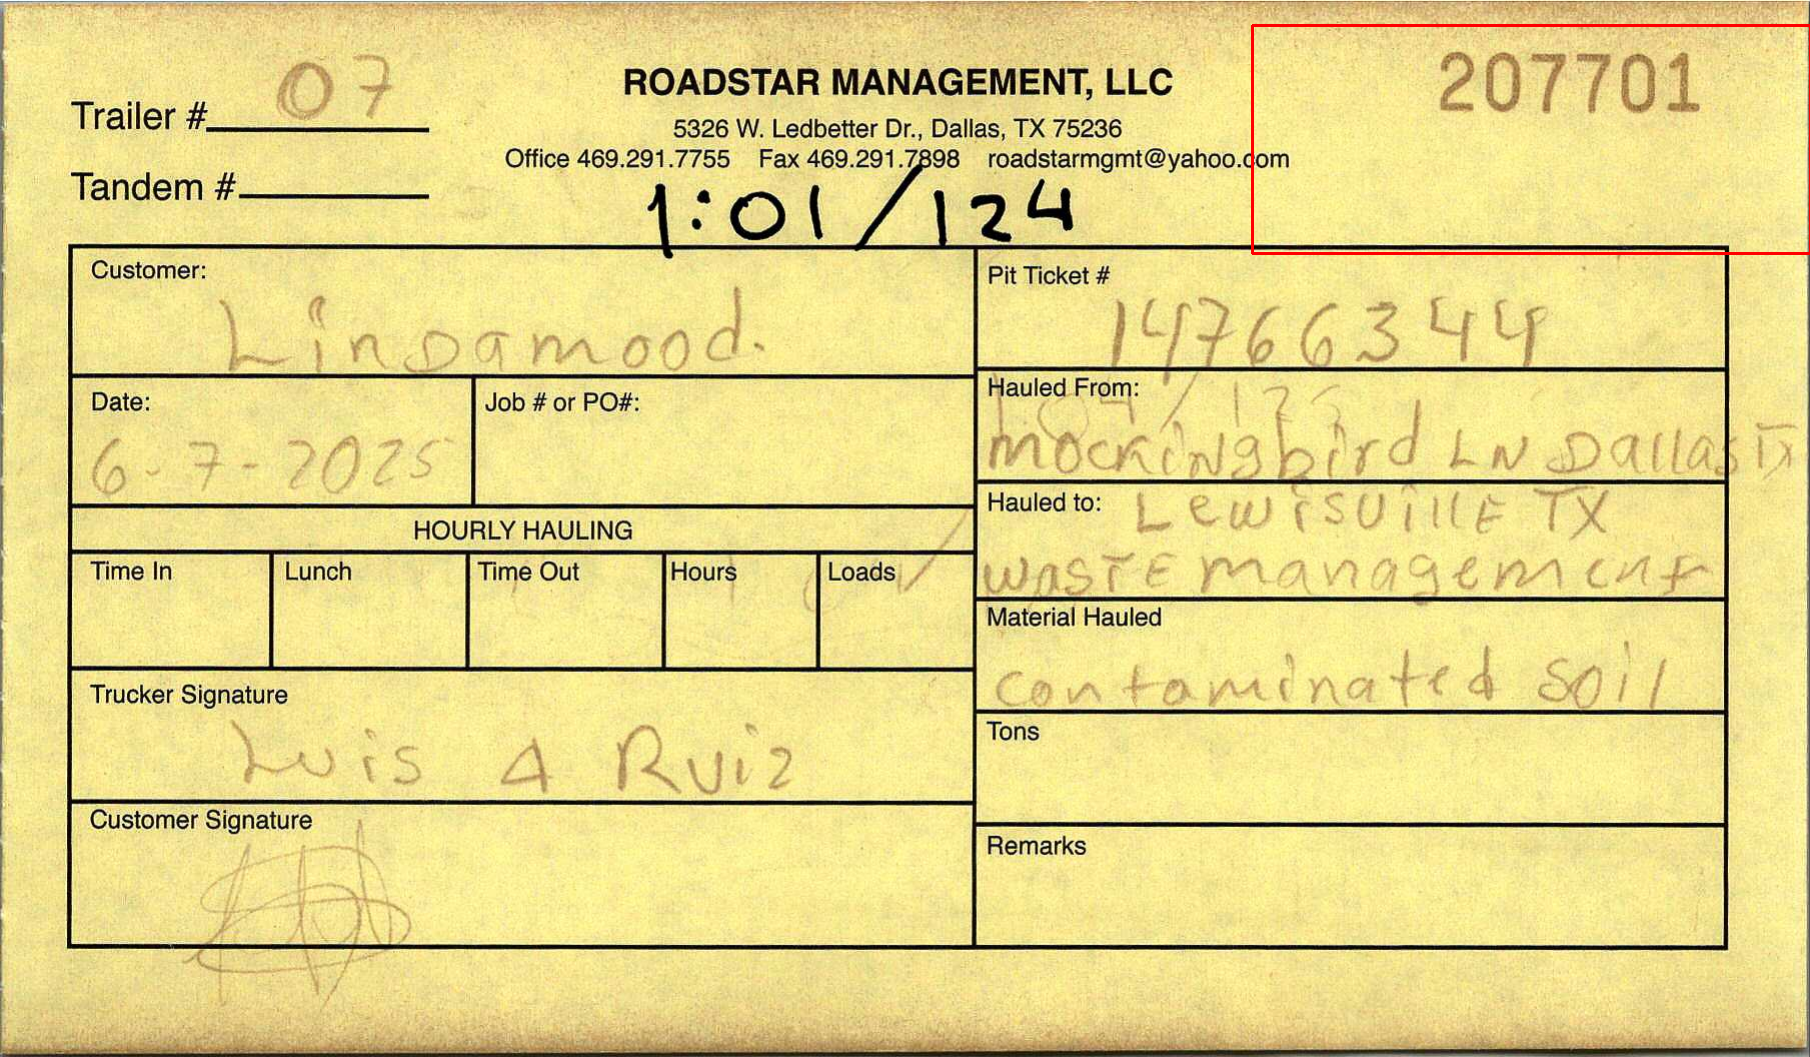 207701
Trailer # 07
ROADSTAR MANAGEMENT, LLC
5326 W. Ledbetter Dr., Dallas, TX 75236
Office 469.291.7755 Fax 469.291.7898 roadstarmgmt@yahoo.com
Tandem #
1:01/124
Customer:
Lindamood.
Pit Ticket #
14766344
Date:
6-7-2025
Job # or PO#:
Hauled From:
mockingbird LN Dallas TX
Hauled to: LewisvillE TX
wasTE management
HOURLY HAULING
Time In
Lunch
Time Out
Hours
Loads
Material Hauled
contaminated soil
Trucker Signature
Luis A Ruiz
Tons
Customer Signature
Remarks